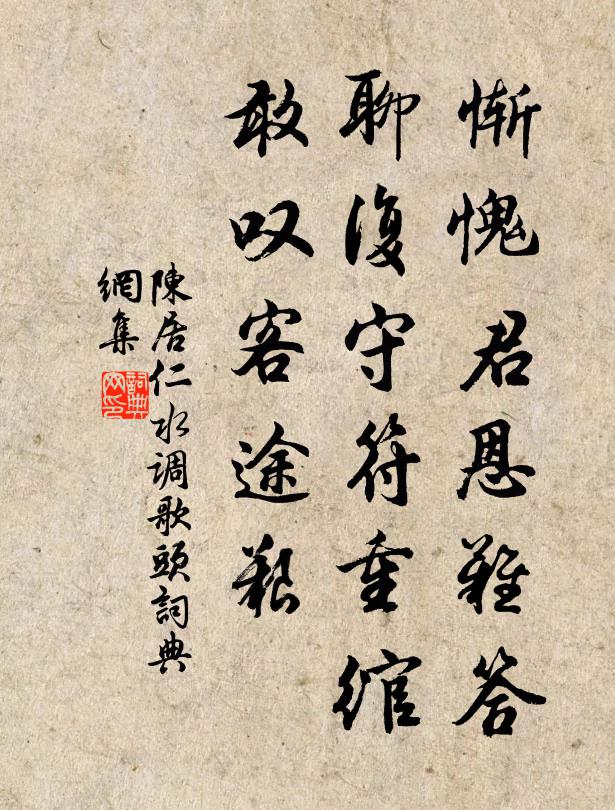 慚愧君恩難答
聊復守符重綰
敢叹客途艱
陳居仁水调歌頭詞典
網集
詞典
网印